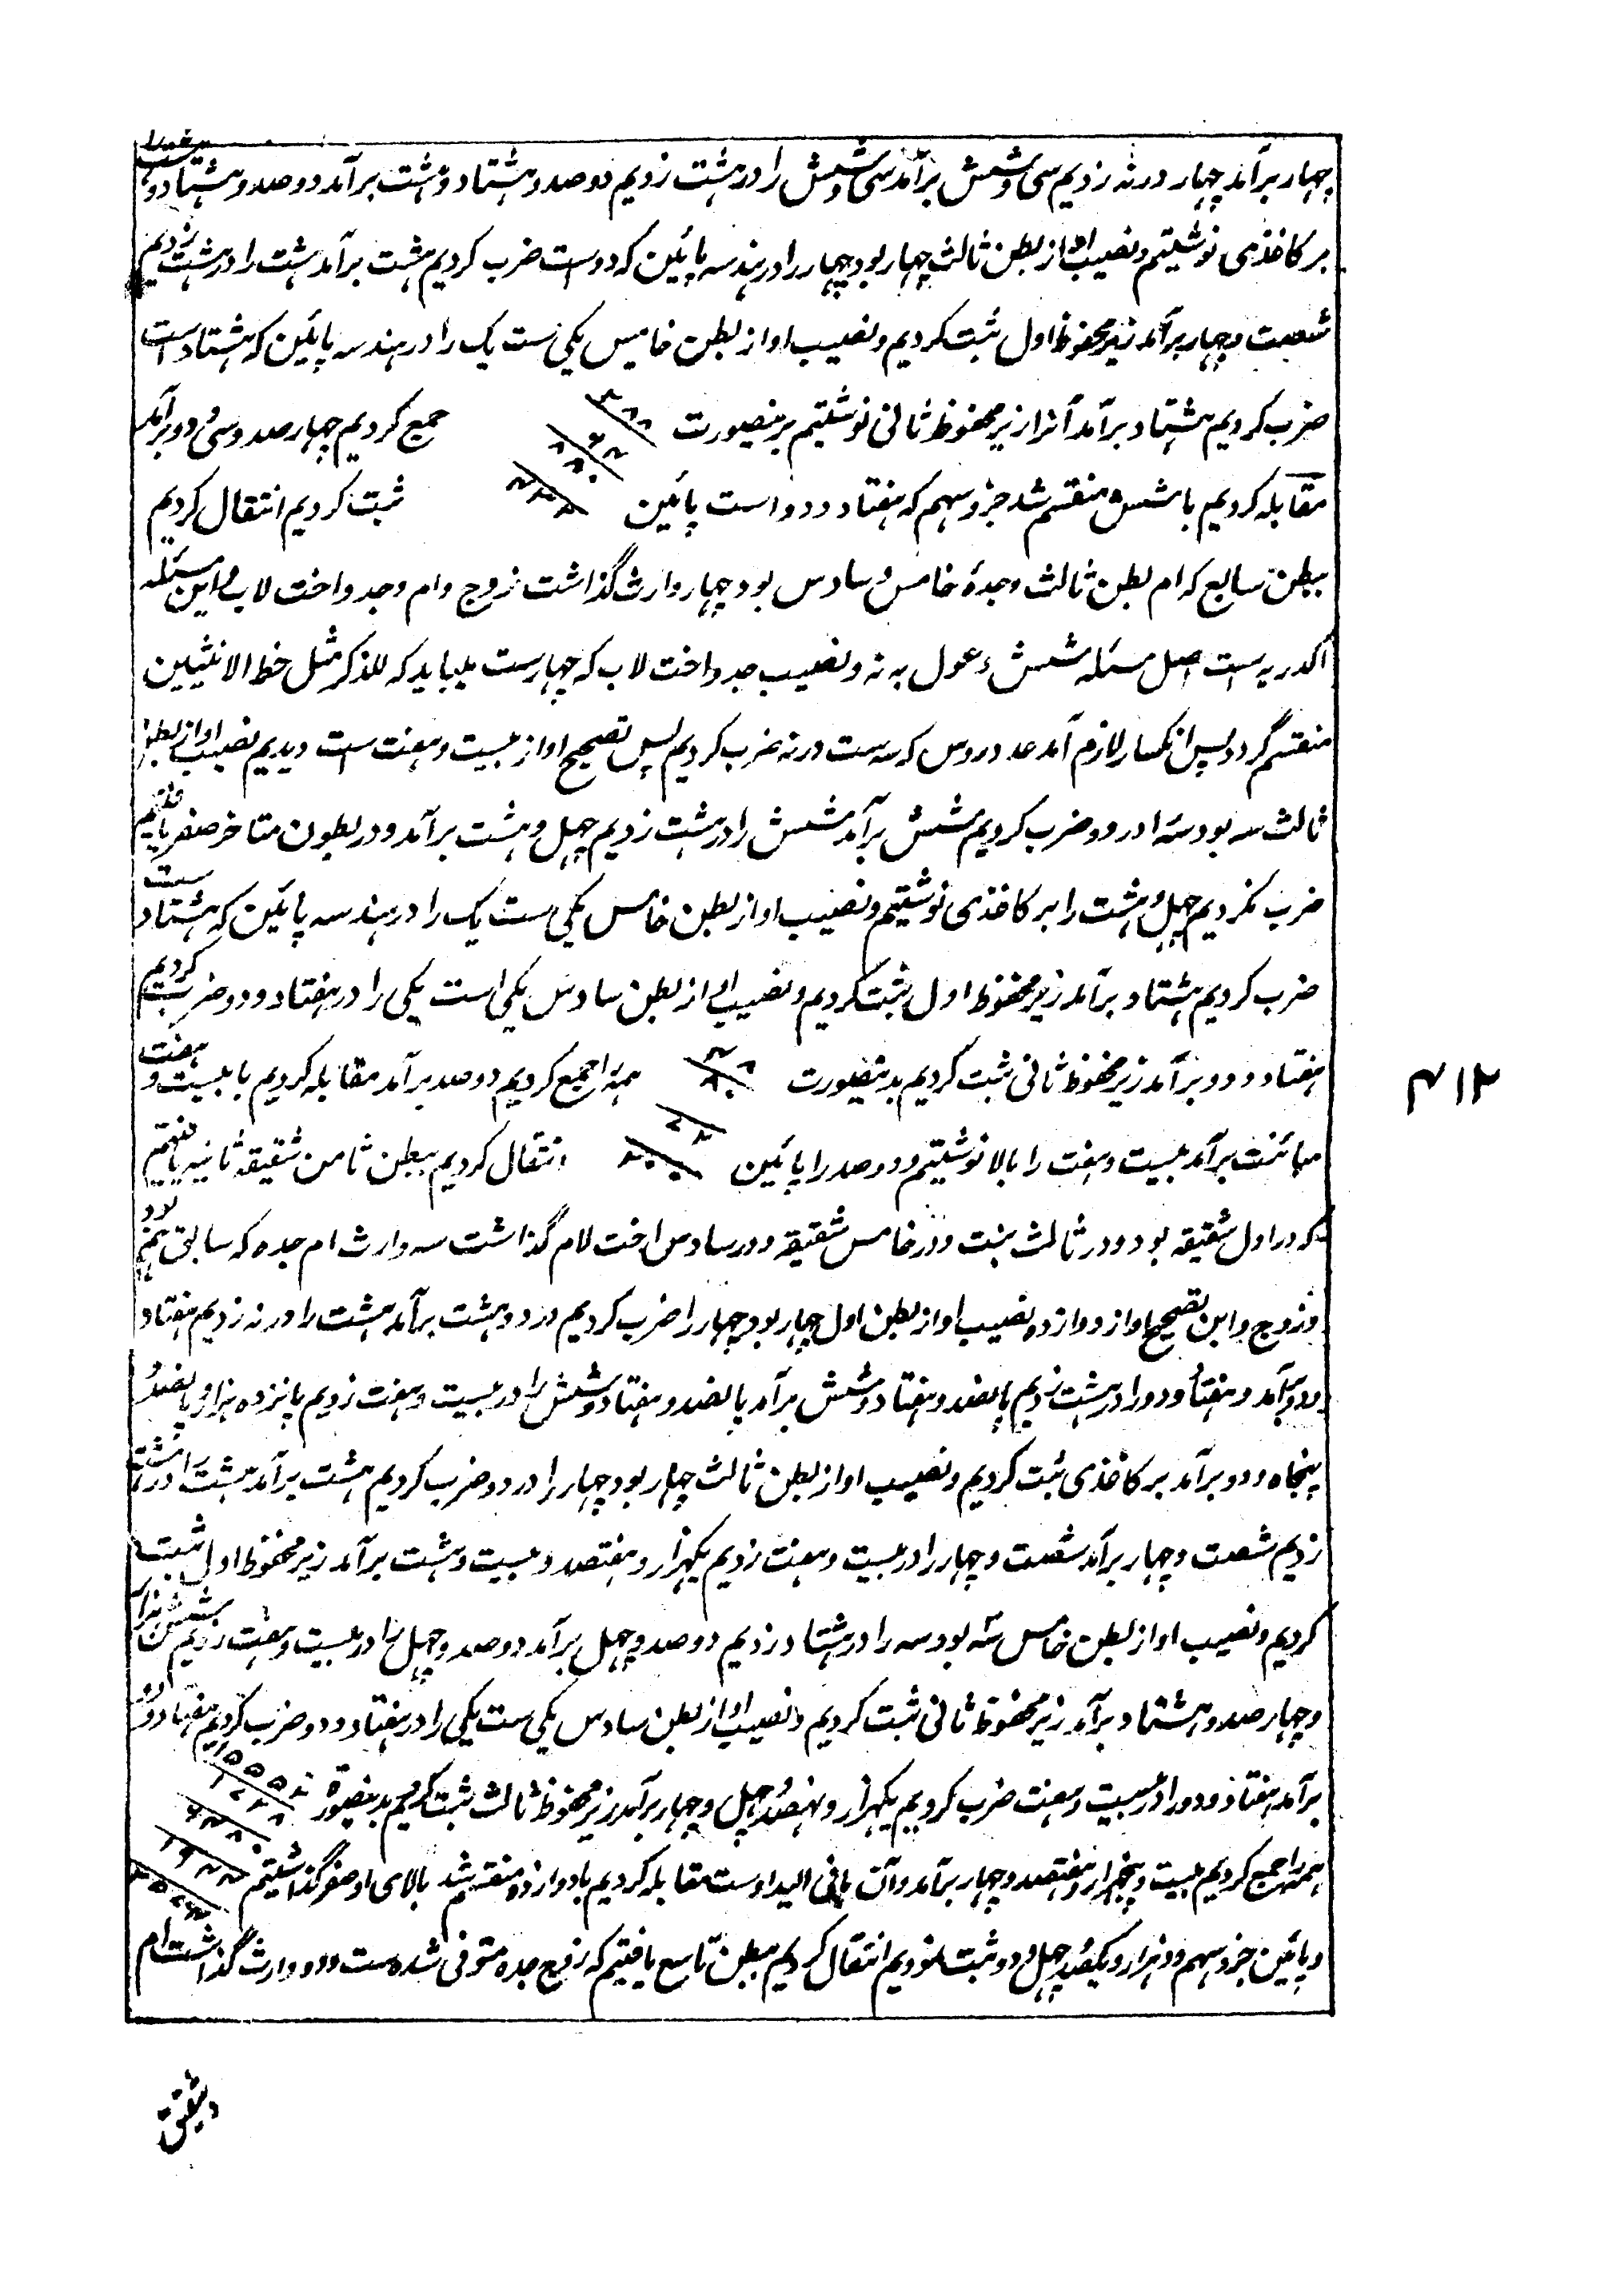 چهار برآمد چهار در نه زدیم سی و شش برآمد سی و شش را در هشت زدیم دو صد و هشتاد و هشت برآمد دو صد و هشتاد و هشت را
بر کاغذی نوشتیم و نصیب او از بطن ثالث چهار بود چهار را در هندسه پائین که دو است ضرب کردیم هشت برآمد هشت را در هشت زدیم
شصت و چهار برآمد زیر محفوظ اول ثبت کردیم و نصیب او از بطن خامس یکی ست یک را در هندسه پائین که هشتاد است
ضرب کردیم هشتاد برآمد آنرا زیر محفوظ ثانی نوشتیم برینصورت ۲۸۸ ۶۴ ۸۰ جمع کردیم چهار صد و سی و دو برآمد
مقابله کردیم با شش منقسم شد جزو سهم که هفتاد و دو است پائین ۴۳۲ ثبت کردیم انتقال کردیم
ببطن سابع که ام بطن ثالث وجدهٔ خامس و سادس بود چهار وارث گذاشت زوج و ام و جد و اخت لاب و این مسئله
اکدریه ست اصل مسئله شش و عول به نه و نصیب جد و اخت لاب که چهارست میباید که للذکر مثل حظ الانثیین
منقسم گردد پس انکسار لازم آمد عدد روس که سه ست در نه ضرب کردیم پس تصحیح او از بیست و هفت ست دیدیم نصیب او از بطن
ثالث سه بود سه را در دو ضرب کردیم شش برآمد شش را در هشت زدیم چهل و هشت برآمد و در بطون متاخر صفر یافتیم
ضرب نکردیم چهل و هشت را بر کاغذی نوشتیم و نصیب او از بطن خامس یکی ست یک را در هندسه پائین که هشتاد ست
ضرب کردیم هشتاد برآمد زیر محفوظ اول ثبت کردیم و نصیب او از بطن سادس یکی است یکی را در هفتاد و دو ضرب کردیم
هفتاد و دو برآمد زیر محفوظ ثانی ثبت کردیم بدینصورت ۴۸ ۸۰ ۷۲ همه را جمع کردیم دو صد برآمد مقابله کردیم با بیست و هفت
مبائنت برآمد بیست و هفت را بالا نوشتیم و دو صد را پائین ۲۰۰ انتقال کردیم ببطن ثامن شقیقه ثانیه یافتیم
که در اول شقیقه بود و در ثالث بنت و در خامس شقیقه و در سادس اخت لام گذاشت سه وارث ام جده که سابق هم بود
و زوج و ابن تصحیح او از دوازده نصیب او از بطن اول چهار بود چهار را ضرب کردیم در دو هشت برآمد هشت را در نه زدیم هفتاد
و دو برآمد و هفتاد و دو را در هشت زدیم پانصد و هفتاد و شش برآمد پانصد و هفتاد و شش را در بیست و هفت زدیم پانزده هزار و پانصد و
پنجاه و دو برآمد بر کاغذی ثبت کردیم و نصیب او از بطن ثالث چهار بود چهار را در دو ضرب کردیم هشت برآمد هشت را در هشت
زدیم شصت و چهار برآمد شصت و چهار را در بیست و هفت زدیم یکهزار و هفتصد و بیست و هشت برآمد زیر محفوظ اول ثبت
کردیم و نصیب او از بطن خامس سه بود سه را در هشتاد زدیم دو صد و چهل برآمد دو صد و چهل را در بیست و هفت زدیم شش هزار
و چهار صد و هشتاد برآمد زیر محفوظ ثانی ثبت کردیم و نصیب او از بطن سادس یکی ست یکی را در هفتاد و دو ضرب کردیم هفتاد و دو
برآمد هفتاد و دو را در بیست و هفت ضرب کردیم یکهزار و نهصد و چهل و چهار برآمد زیر محفوظ ثالث ثبت کردیم بدینصورة ۱۵۵۵۲ ۱۷۲۸ ۶۴۸۰ ۱۹۴۴
همه را جمع کردیم بیست و پنجهزار و هفتصد و چهار برآمد و آن مافی الید اوست مقابله کردیم با دوازده منقسم شد بالای او صفر گذاشتیم ۲۵۷۰۴
و پائین جزو سهم دو هزار و یکصد و چهل و دو ثبت نمودیم انتقال کردیم ببطن تاسع یافتیم که زوج جده متوفی شده ست و دو وارث گذاشت ام
وشقیق
۴۱۲